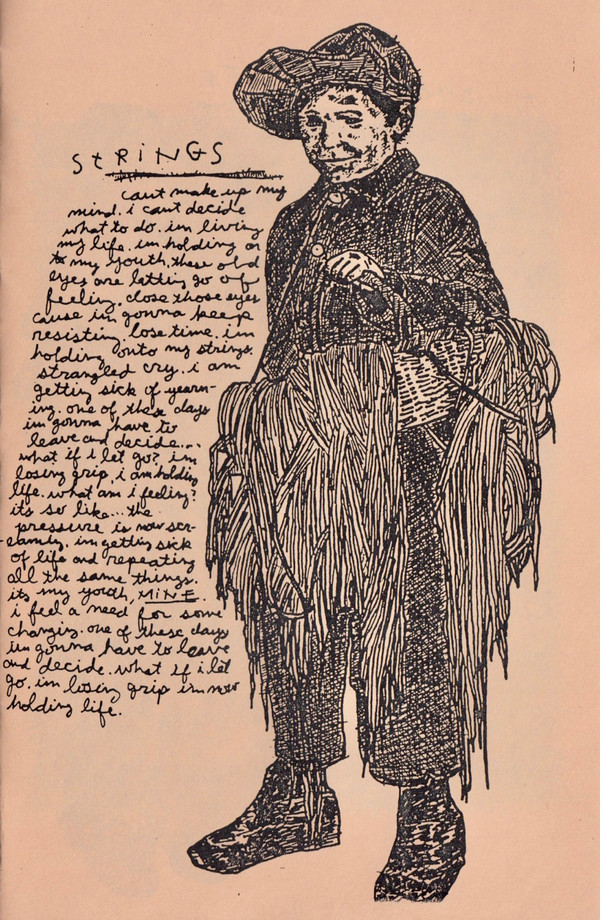 StRiNGS
cant make up my
mind. i cant decide
what to do. im living
my life. im holding on
to my youth, these old
eyes are letting go of
feeling. close those eyes
cause im gonna keep
resisting, lose time. im
holding onto my strings.
strangled cry. i am
getting sick of yearn-
ing. one of these days
im gonna have to
leave and decide...
what if i let go? im
losing grip, i am holding
life. what am i feeling?
it's so like... the
pressure is now scr-
eaming. im getting sick
of life and repeating
all the same things.
its my youth, MINE.
i feel a need for some
changing. one of these days
im gonna have to leave
and decide. what if i let
go. im losing grip im now
holding life.